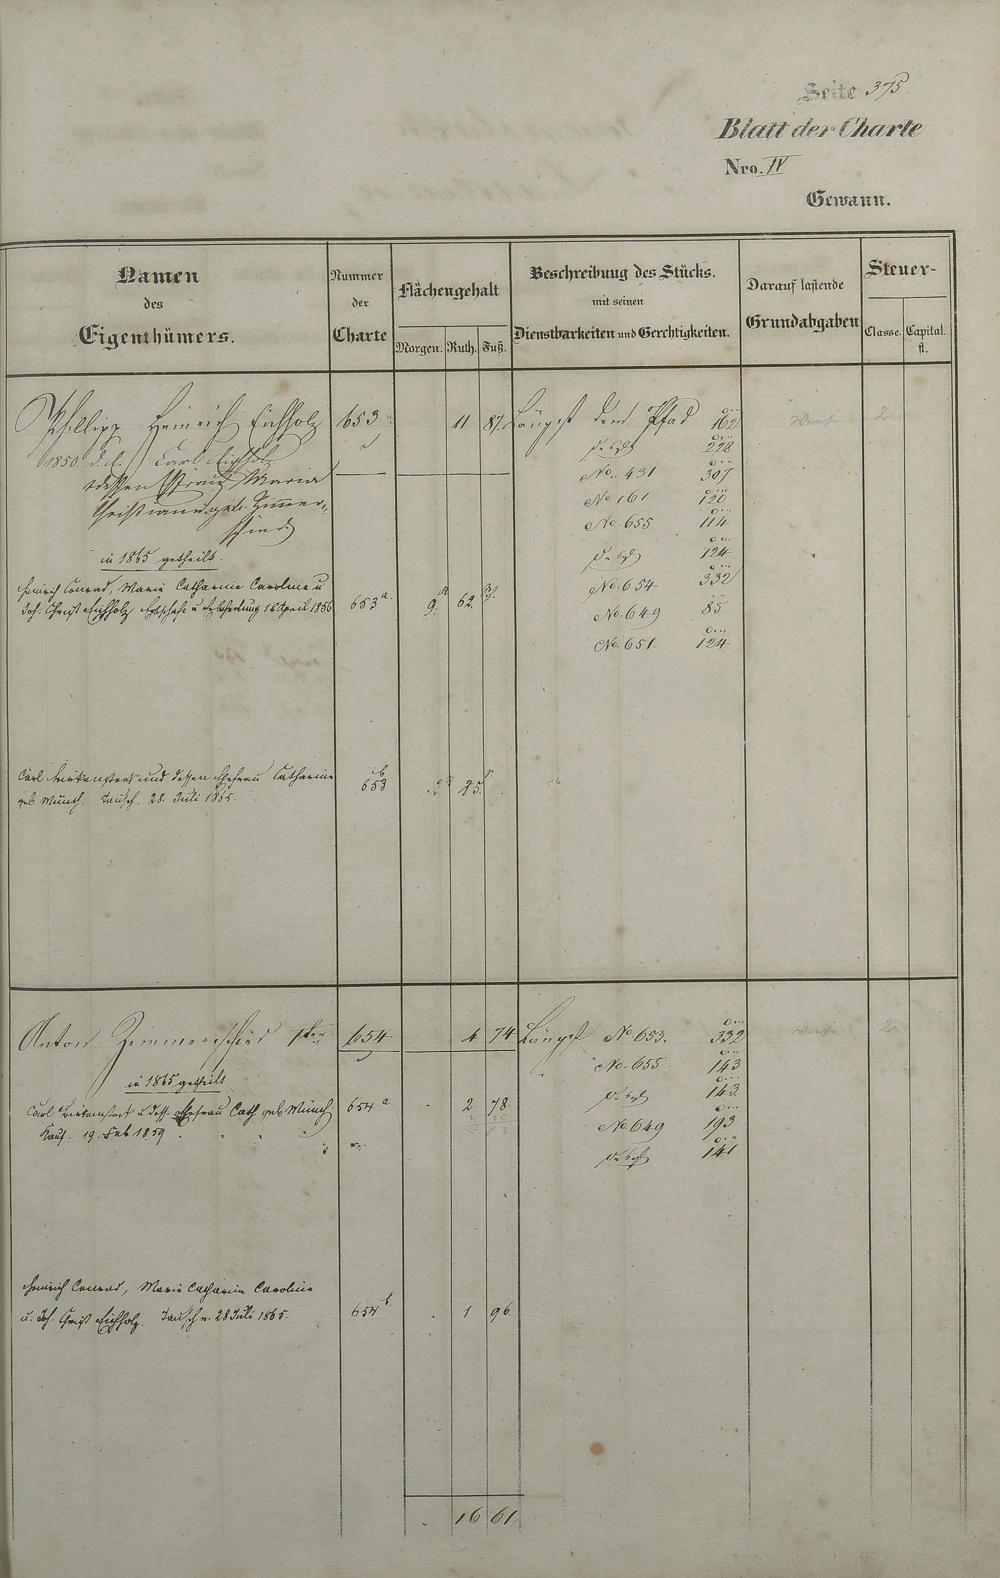 Seite 375
Blatt der Charte
Nro. IV
Gewann.
Namen des Eigenthümers.
Nummer der Charte
Flächengehalt
Morgen. Ruth. Fuß.
Beschreibung des Stücks.
mit seinen
Dienstbarkeiten und Gerechtigkeiten.
Darauf lastende
Grundabgaben
Steuer-
Classe. Capital. fl.
Phillipp Heinrich Eichholz 653 11 87. Längst dem Pfad 162
1850 d. d. Carl Eichholz 228
dessen Frau Maria No. 431 307
Christiane geb. Zimmer- No. 161 120
schied No. 655 114
in 1865 getheilt. 124
Heinrich Conrad, Marie Catharine Caroline u No. 654 332
Joh. Christ Eichholz Erbschaft u 16 April 1856 653 a. 9. 62. No. 649 85
No. 651. 124
Carl und dessen Ehefrau Catharine 653 b 2 25.
geb Münch. Tausch. 28. Juli 1865.
Anton Zimmerschied 1ter 654 4 74 Längst No 653. 332
No. 655 143
in 1865 getheilt 143.
Carl u dess. Ehefrau Cath geb Münch. 654 a 2 78. No 649 193
Kauf. 19. Feb 1859 141
Heinrich Conrad, Marie Catharine Caroline
u. Joh. Christ Eichholz. Tausch v. 28 Juli 1865. 654 b 1 96.
16 61